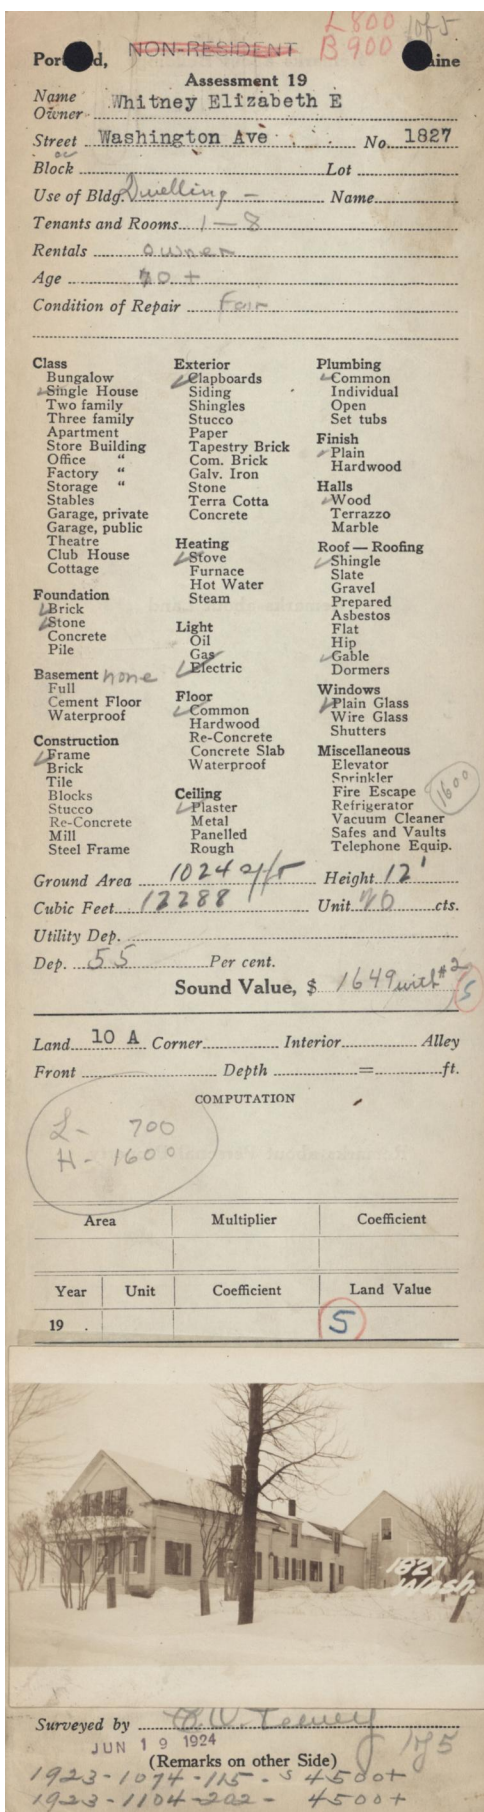 L 800 1 of 5
NON-RESIDENT B 900
Portland, Maine
Assessment 19
Name Whitney Elizabeth E
Owner
Street Washington Ave No. 1827
or
Block Lot
Use of Bldg. Dwelling - Name
Tenants and Rooms 1 - 8
Rentals owner
Age 70 +
Condition of Repair Fair
Class
Bungalow
Single House
Two family
Three family
Apartment
Store Building
Office "
Factory "
Storage "
Stables
Garage, private
Garage, public
Theatre
Club House
Cottage
Foundation
Brick
Stone
Concrete
Pile
Basement none
Full
Cement Floor
Waterproof
Construction
Frame
Brick
Tile
Blocks
Stucco
Re-Concrete
Mill
Steel Frame
Exterior
Clapboards
Siding
Shingles
Stucco
Paper
Tapestry Brick
Com. Brick
Galv. Iron
Stone
Terra Cotta
Concrete
Heating
Stove
Furnace
Hot Water
Steam
Light
Oil
Gas
Electric
Floor
Common
Hardwood
Re-Concrete
Concrete Slab
Waterproof
Ceiling
Plaster
Metal
Panelled
Rough
Plumbing
Common
Individual
Open
Set tubs
Finish
Plain
Hardwood
Halls
Wood
Terrazzo
Marble
Roof — Roofing
Shingle
Slate
Gravel
Prepared
Asbestos
Flat
Hip
Gable
Dormers
Windows
Plain Glass
Wire Glass
Shutters
Miscellaneous
Elevator
Sprinkler
Fire Escape
Refrigerator
Vacuum Cleaner
Safes and Vaults
Telephone Equip.
1600
Ground Area 1024 Height 12'
Cubic Feet 12288 Unit 20 cts.
Utility Dep.
Dep. 55 Per cent.
Sound Value, $ 1649 with #2
5
Land 10 A Corner Interior Alley
Front Depth = ft.
COMPUTATION
L- 700
H- 1600
Area Multiplier Coefficient
Year Unit Coefficient Land Value
19 . 5
1827
Wash.
Surveyed by
JUN 19 1924 1 of 5
(Remarks on other Side)
1923-1074-115- s 4500+
1923-1104-202- 4500+